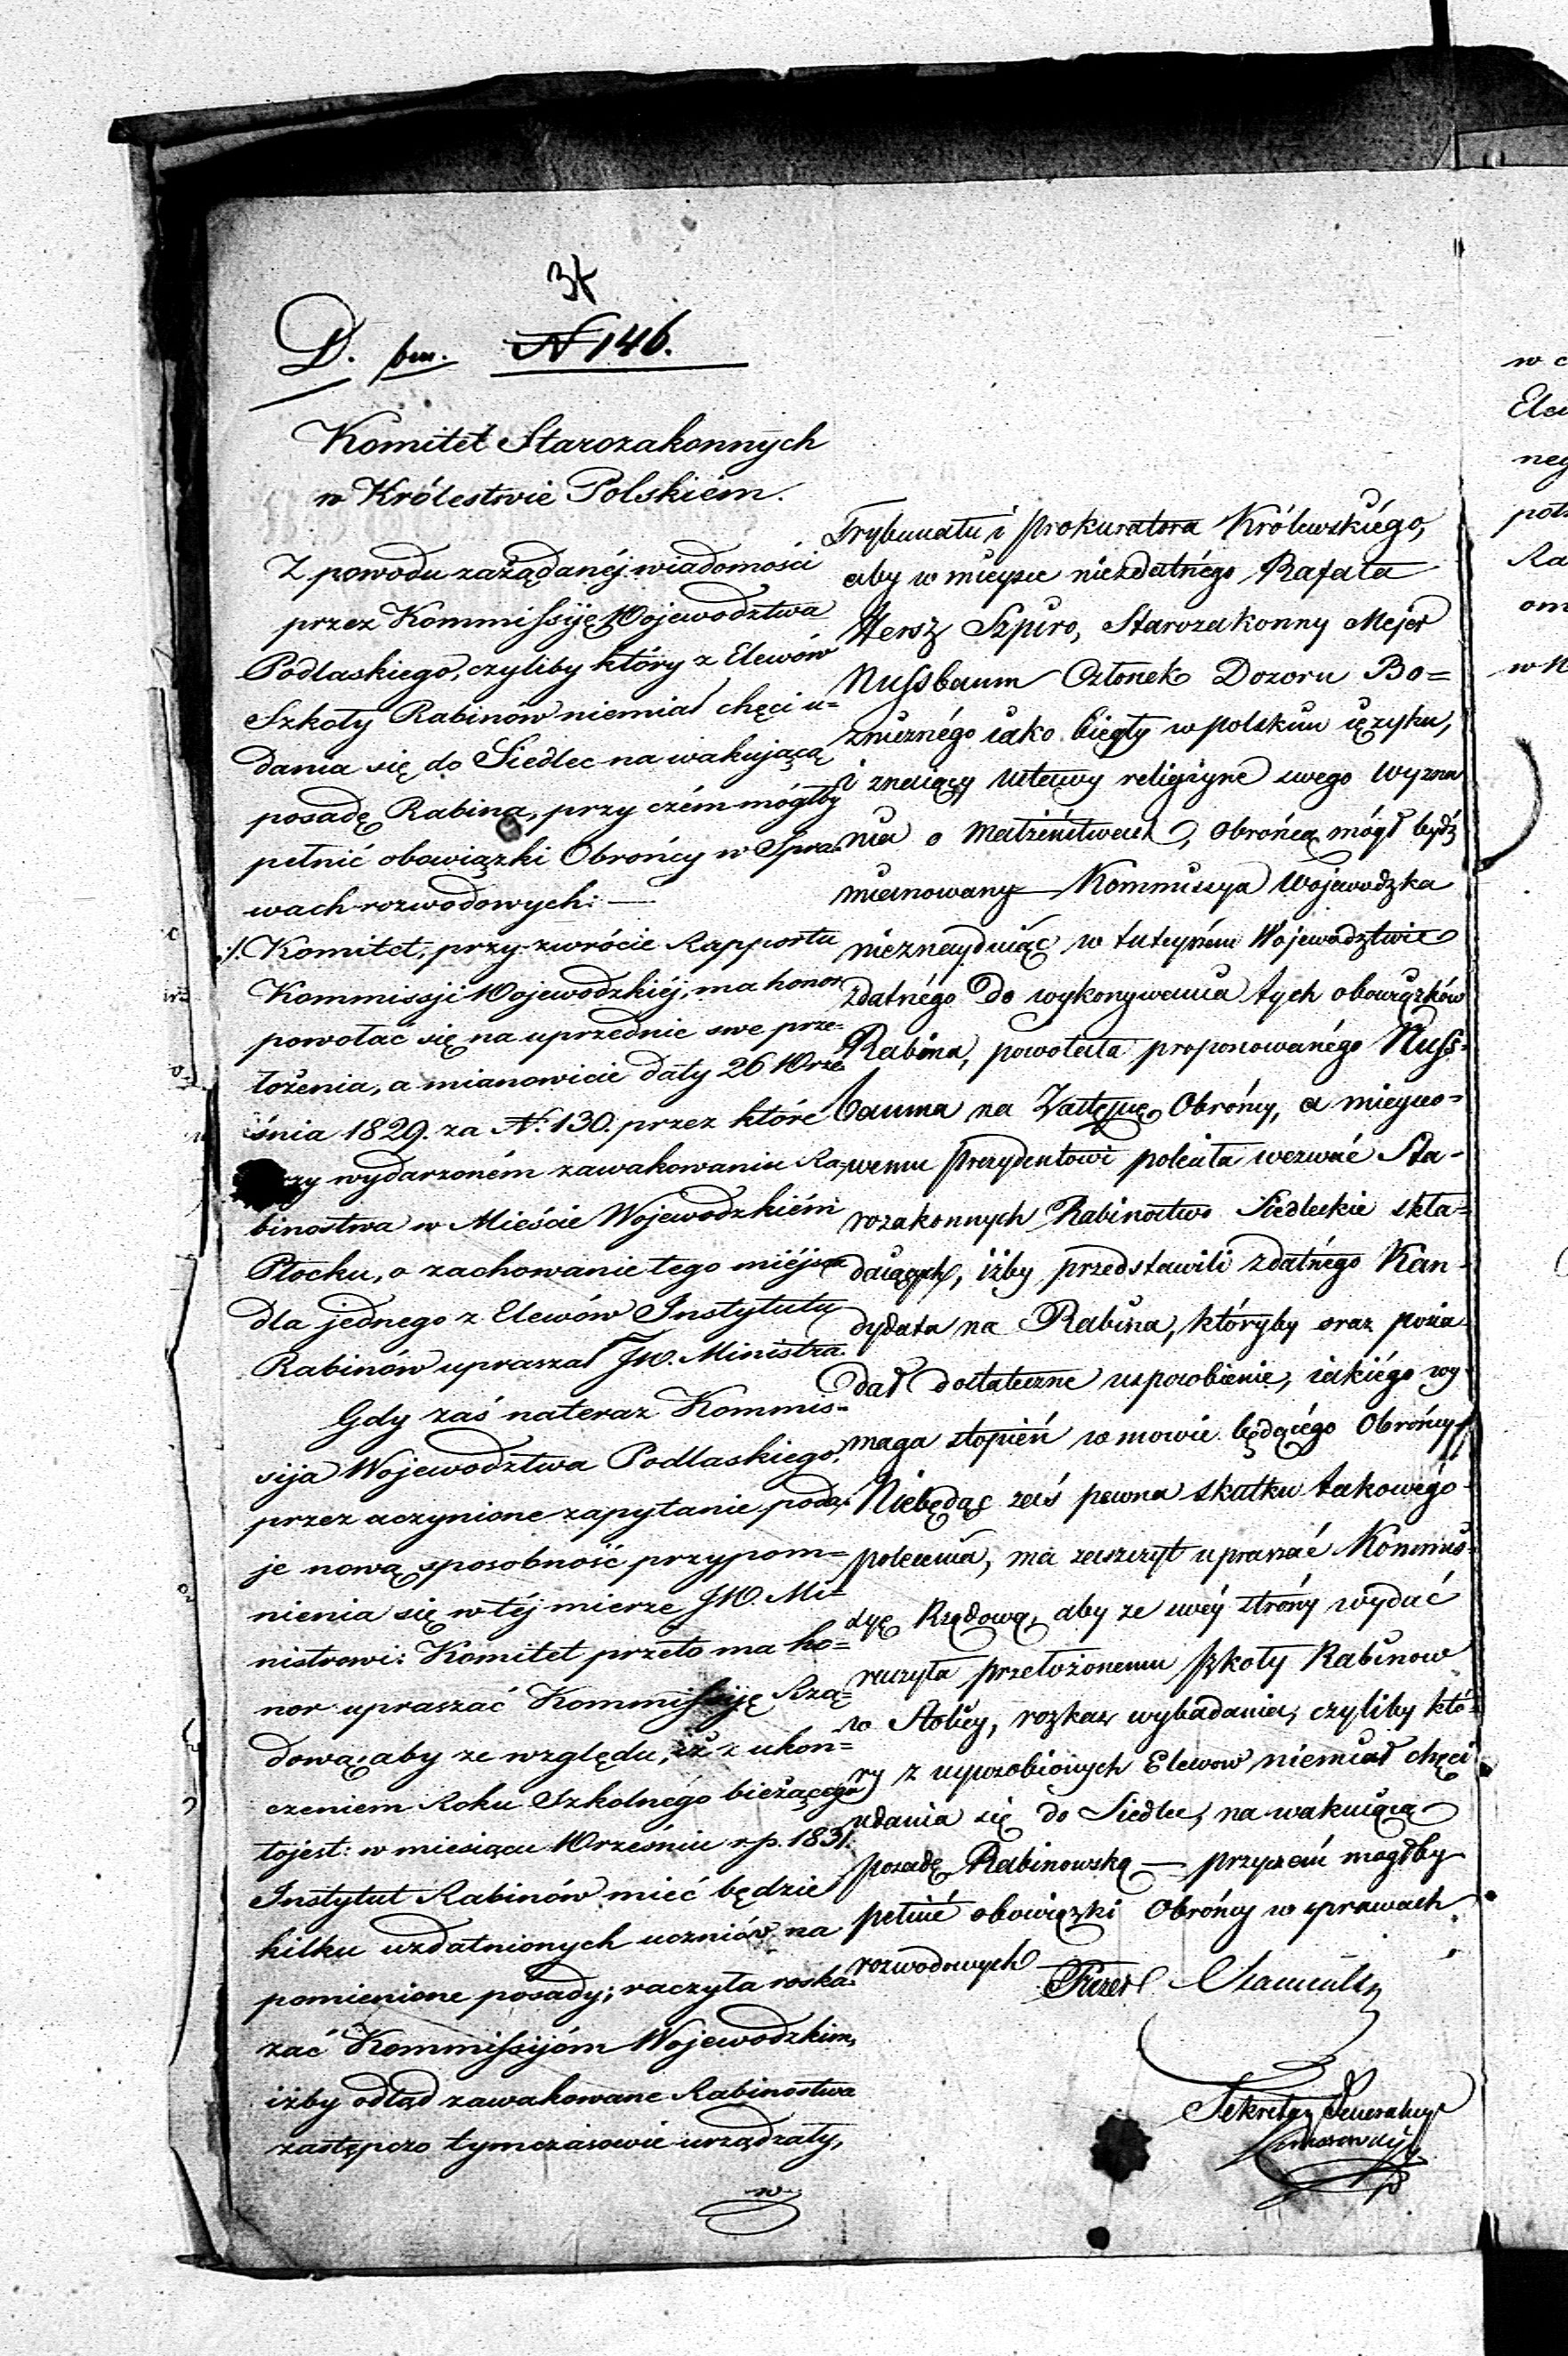 34
D. bm. N 146.
Komitet Starozakonnych
w Królestwie Polskiem.
Z powodu zażądanéj wiadomości
przez Kommissyję Województwa
Podlaskiego, czyliby który z Elewów
Szkoły Rabinów niemiał chęci u=
dania się do Siedlec na wakującą
posadę Rabina, przy czém mógłby
pełnić obowiązki Obrońcy w Spra=
wach rozwodowych: —
./. Komitet, przy zwrócie Rapportu
Kommissji Wojewodzkiéj, ma honor
powołać się na uprzednie swe prze=
łożenia, a mianowicie daty 26 Wrze
śnia 1829. za N. 130. przez które
przy wydarzoném zawakowaniu Ra=
binostwa w Mieście Wojewodzkiém
Płocku, o zachowanie tego miéjsca
dla jednego z Elewów Instytutu
Rabinów upraszał JW. Ministra.
Gdy zaś nateraz Kommis=
sija Województwa Podlaskiego,
przez uczynione zapytanie poda=
je nową sposobność przypom=
nienia się w téj mierze JW. Mi=
nistrowi: Komitet przeto ma ho=
nor upraszać Kommissiję Rzą=
dową, aby ze względu, iż z ukoń=
czeniem Roku Szkolnégo bieżącego
tojest: w miesiącu Wrześniu r.p. 1831.
Instytut Rabinów mieć będzie
kilku uzdatnionych uczniów na
pomienione posady; raczyła roska=
zać Kommissijóm Wojewodzkim,
iżby odtąd zawakowane Rabinostwa
zastępczo tymczasowie urządzały,
w
Trybunału i prokuratora Królewskiégo,
aby w mieysce niezdatnégo Rafała
Hersz Szpiro, Starozakonny Mejer
Nussbaum Członek Dozoru Bo=
znicznégo iako biegły w polskim ięzyku,
i znaiący ustawy religiyne swego wyzna
nia o małżeństwach, obrońcą mógł bydź
mianowany — Kommissya Wojewodzka
nieznayduiąc w tuteyszém Województwie
zdatnégo do wykonywania tych obowiązków
Rabina, powołała proponowanégo Nuss=
bauma na Zastępcę Obrońcy, a mieysco=
wemu prezydentowi poleciła wezwać Sta=
rozakonnych Rabinostwo Siedleckie skła=
daiących, iżby przedstawili zdatnégo Kan=
dydata na Rabina, któryby oraz posia
dał dostateczne usposobienie, iakiégo wy
maga stopień w mowie będącégo Obrońcy.
Niebędąc zaś pewna skutku takowégo
polecenia, ma zaszczyt upraszać Kommis=
syę Rządową, aby ze swéy strony wydać
raczyła przełożonemu szkoły Rabinow
w Stolicy, rozkaz wybadania, czyliby któ=
ry z usposobionych Elewow niemiał chęci
udania się do Siedlec, na wakuiącą
posadę Rabinowską — przyczém mogłby
pełnić obowiązki Obrońcy w sprawach
rozwodowych
Sekretarz Generalny
w c
Elew
neg
potr
Ra
om
w N